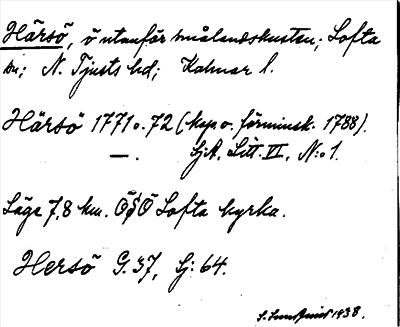 Härsö, ö utanför smålandskusten; Lofta
sn; N. Tjusts hd; Kalmar l.
Härsö 1771 o. 72 (kap o. förminsk. 1788).
—. SjA, Litt. VI, N:o 1.
Läge 7,8 km. ÖSÖ Lofta kyrka.
Hersö G. 37, Sj: 64.
1938.